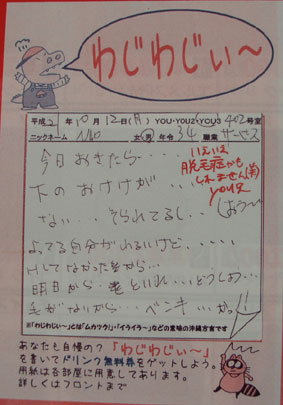 わじわじぃ～
平成21年10月12日(月) YOU・YOU2・YOU3 402号室
ニックネーム 女・男 年令 34 職業 サービス
今日おきたら・・・
下のおけけが・・・
ない・・・そられてるし・・
いえいえ
脱毛症かも
しれません(笑)
YOUより
よってる自分がわるいけど・・・・・
Hしてなかった
明日から・・・
毛がないから・・・ペンキ・・・
※「わじわじぃ～」とは「ムカツク!」・「イライラ～」などの意味の沖縄方言です
あなたも自慢の?「わじわじぃ～」
を書いてドリンク無料券をゲットしよう。
用紙は各部屋に用意してあります。
詳しくはフロントまで